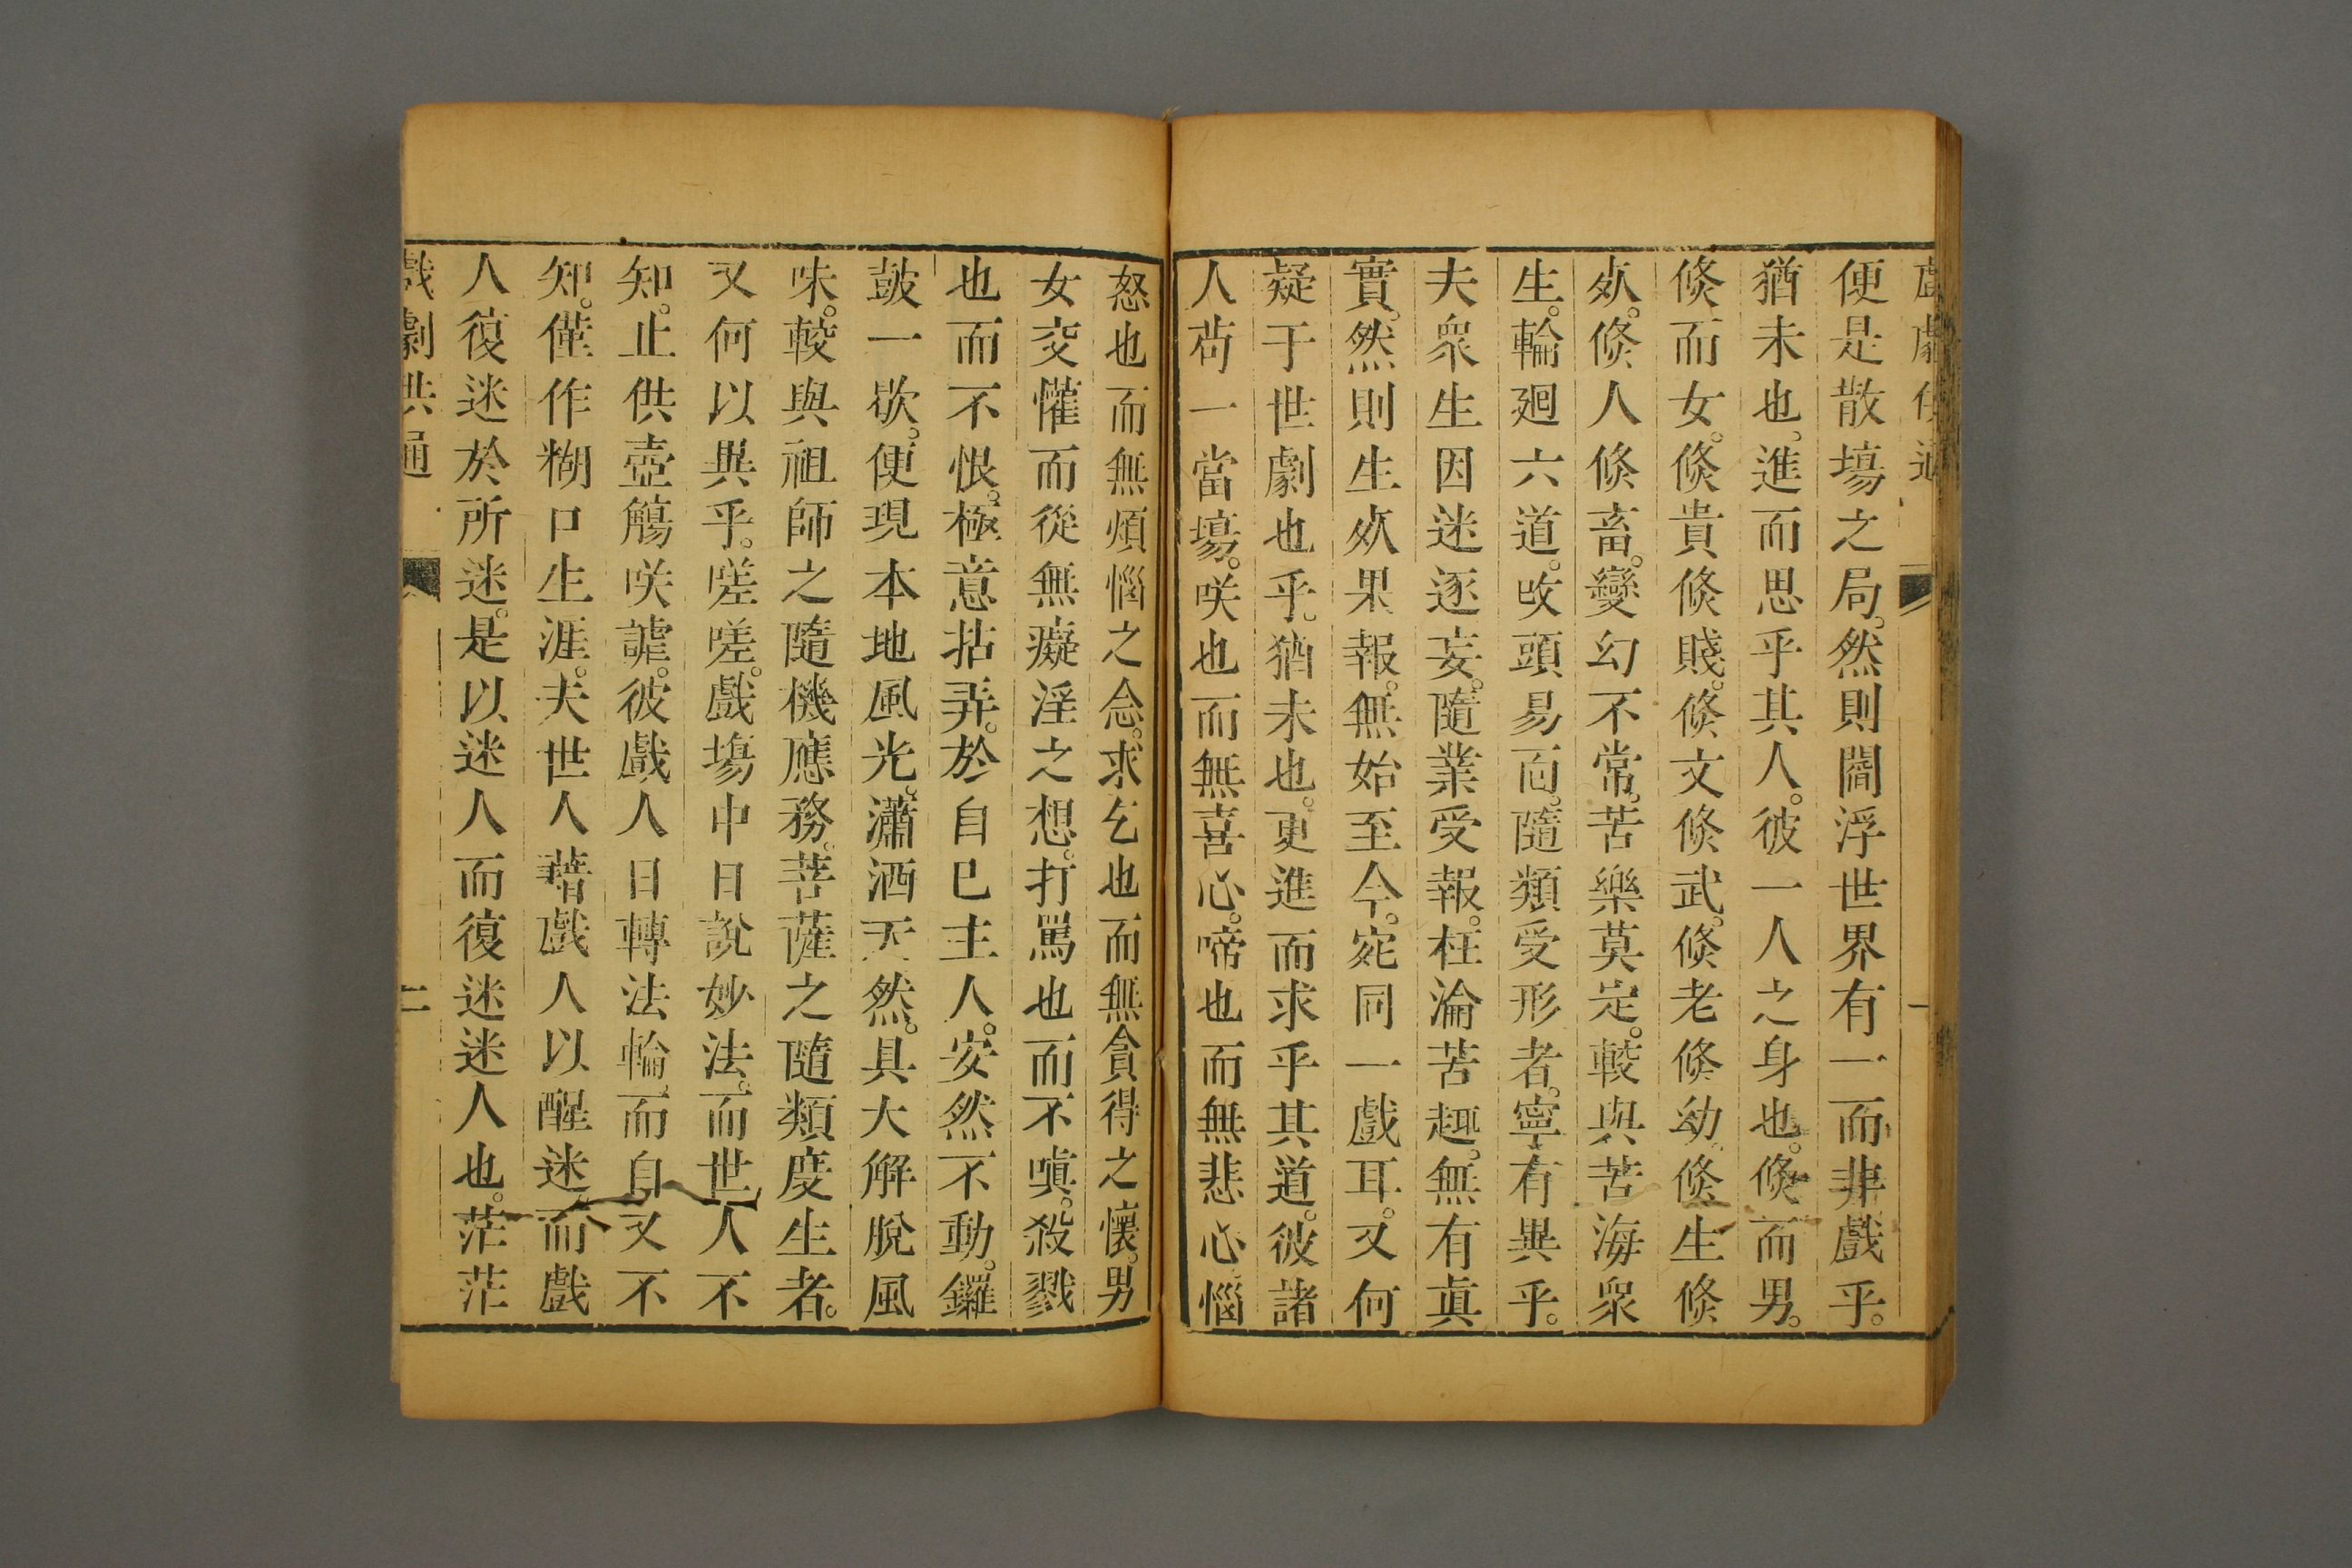 戲劇供通 一
便是散場之局。然則閻浮世界有一而非戲乎。
猶未也。進而思乎其人。彼一人之身也。倐而男。
倐而女。倐貴倐賤。倐文倐武。倐老倐幼。倐生倐
㱙。倐人倐畜。變幻不常。苦樂莫定。較與苦海衆
生。輪廻六道。攺頭易靣。隨類受形者。寧有異乎。
夫衆生因迷逐妄。隨業受報。枉淪苦趣。無有眞
實。然則生㱙果報。無始至今。宛同一戲耳。又何
疑于世劇也乎。猶未也。更進而求乎其道。彼諸
人苟一當塲。咲也而無喜心。啼也而無悲心。惱
怒也而無煩惱之念。求乞也而無貪得之懷。男
女交懽而從無癡淫之想。打罵也而不嗔。殺戮
也而不恨。極意拈弄。於自巳主人。安然不動。鑼
皷一欲。便現本地風光。瀟洒天然。具大解脫風
味。較與祖師之隨機應務。菩薩之隨類度生者。
又何以異乎。嗟嗟。戲塲中日說妙法。而世人不
知。止供壺觴咲謔。彼戲人日轉法輪。而自又不
知。僅作糊口生涯。夫世人藉戲人以醒迷。而戲
人復迷於所迷。是以迷人而復迷迷人也。茫茫
戲劇供通 二